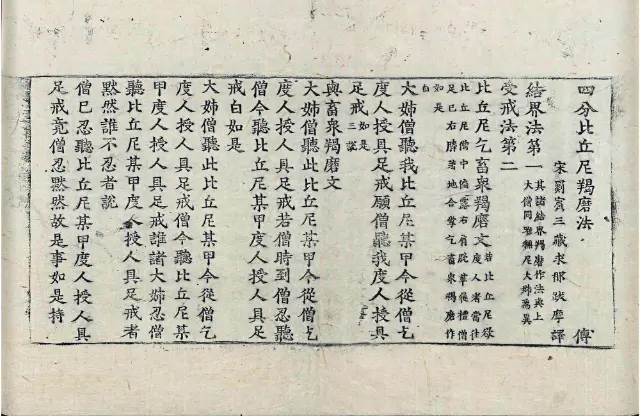 四分比丘尼羯磨法 傅
宋罽賓三藏求那跋摩譯
結界法第一 其諸結界羯磨作法與上
大僧同唯稱尼大姊為異
受戒法第二
比丘尼乞畜衆羯磨文 若比丘尼欲
度人者當往
比丘尼僧中偏露右肩脫革屣禮僧
足已右膝著地合掌乞畜衆羯磨作
如是
白
大姊僧聽我比丘尼某甲今從僧乞
度人授具足戒願僧聽我度人授具
足戒 如是
三說
與畜衆羯磨文
大姊僧聽此比丘尼某甲今從僧乞
度人授人具足戒若僧時到僧忍聽
僧今聽比丘尼某甲度人授人具足
戒白如是
大姊僧聽此比丘尼某甲今從僧乞
度人授人具足戒僧今聽比丘尼某
甲度人授人具足戒誰諸大姊忍僧
聽比丘尼某甲度人授人具足戒者
默然誰不忍者說
僧已忍聽比丘尼某甲度人授人具
足戒竟僧忍默然故是事如是持